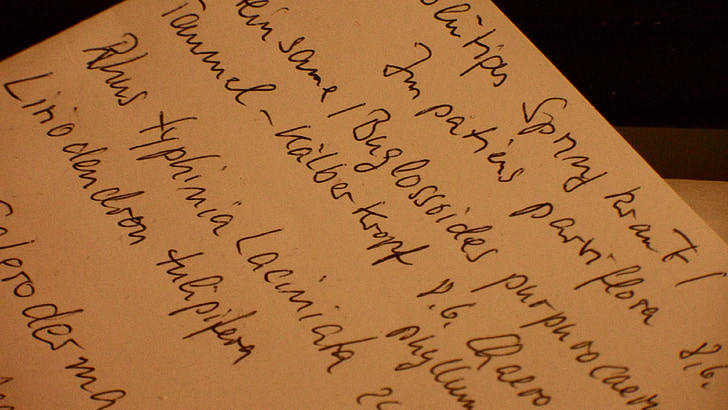 blütiges Springkraut /
Impatiens parviflora 8.6.
einsame / Buglossoides purpurocaer
Taumel - Kälberkropf 8.6. Chaero
phyllum
Rhus typhinia Laciniata 2
Liriodendron tulipifera
Scleroderma